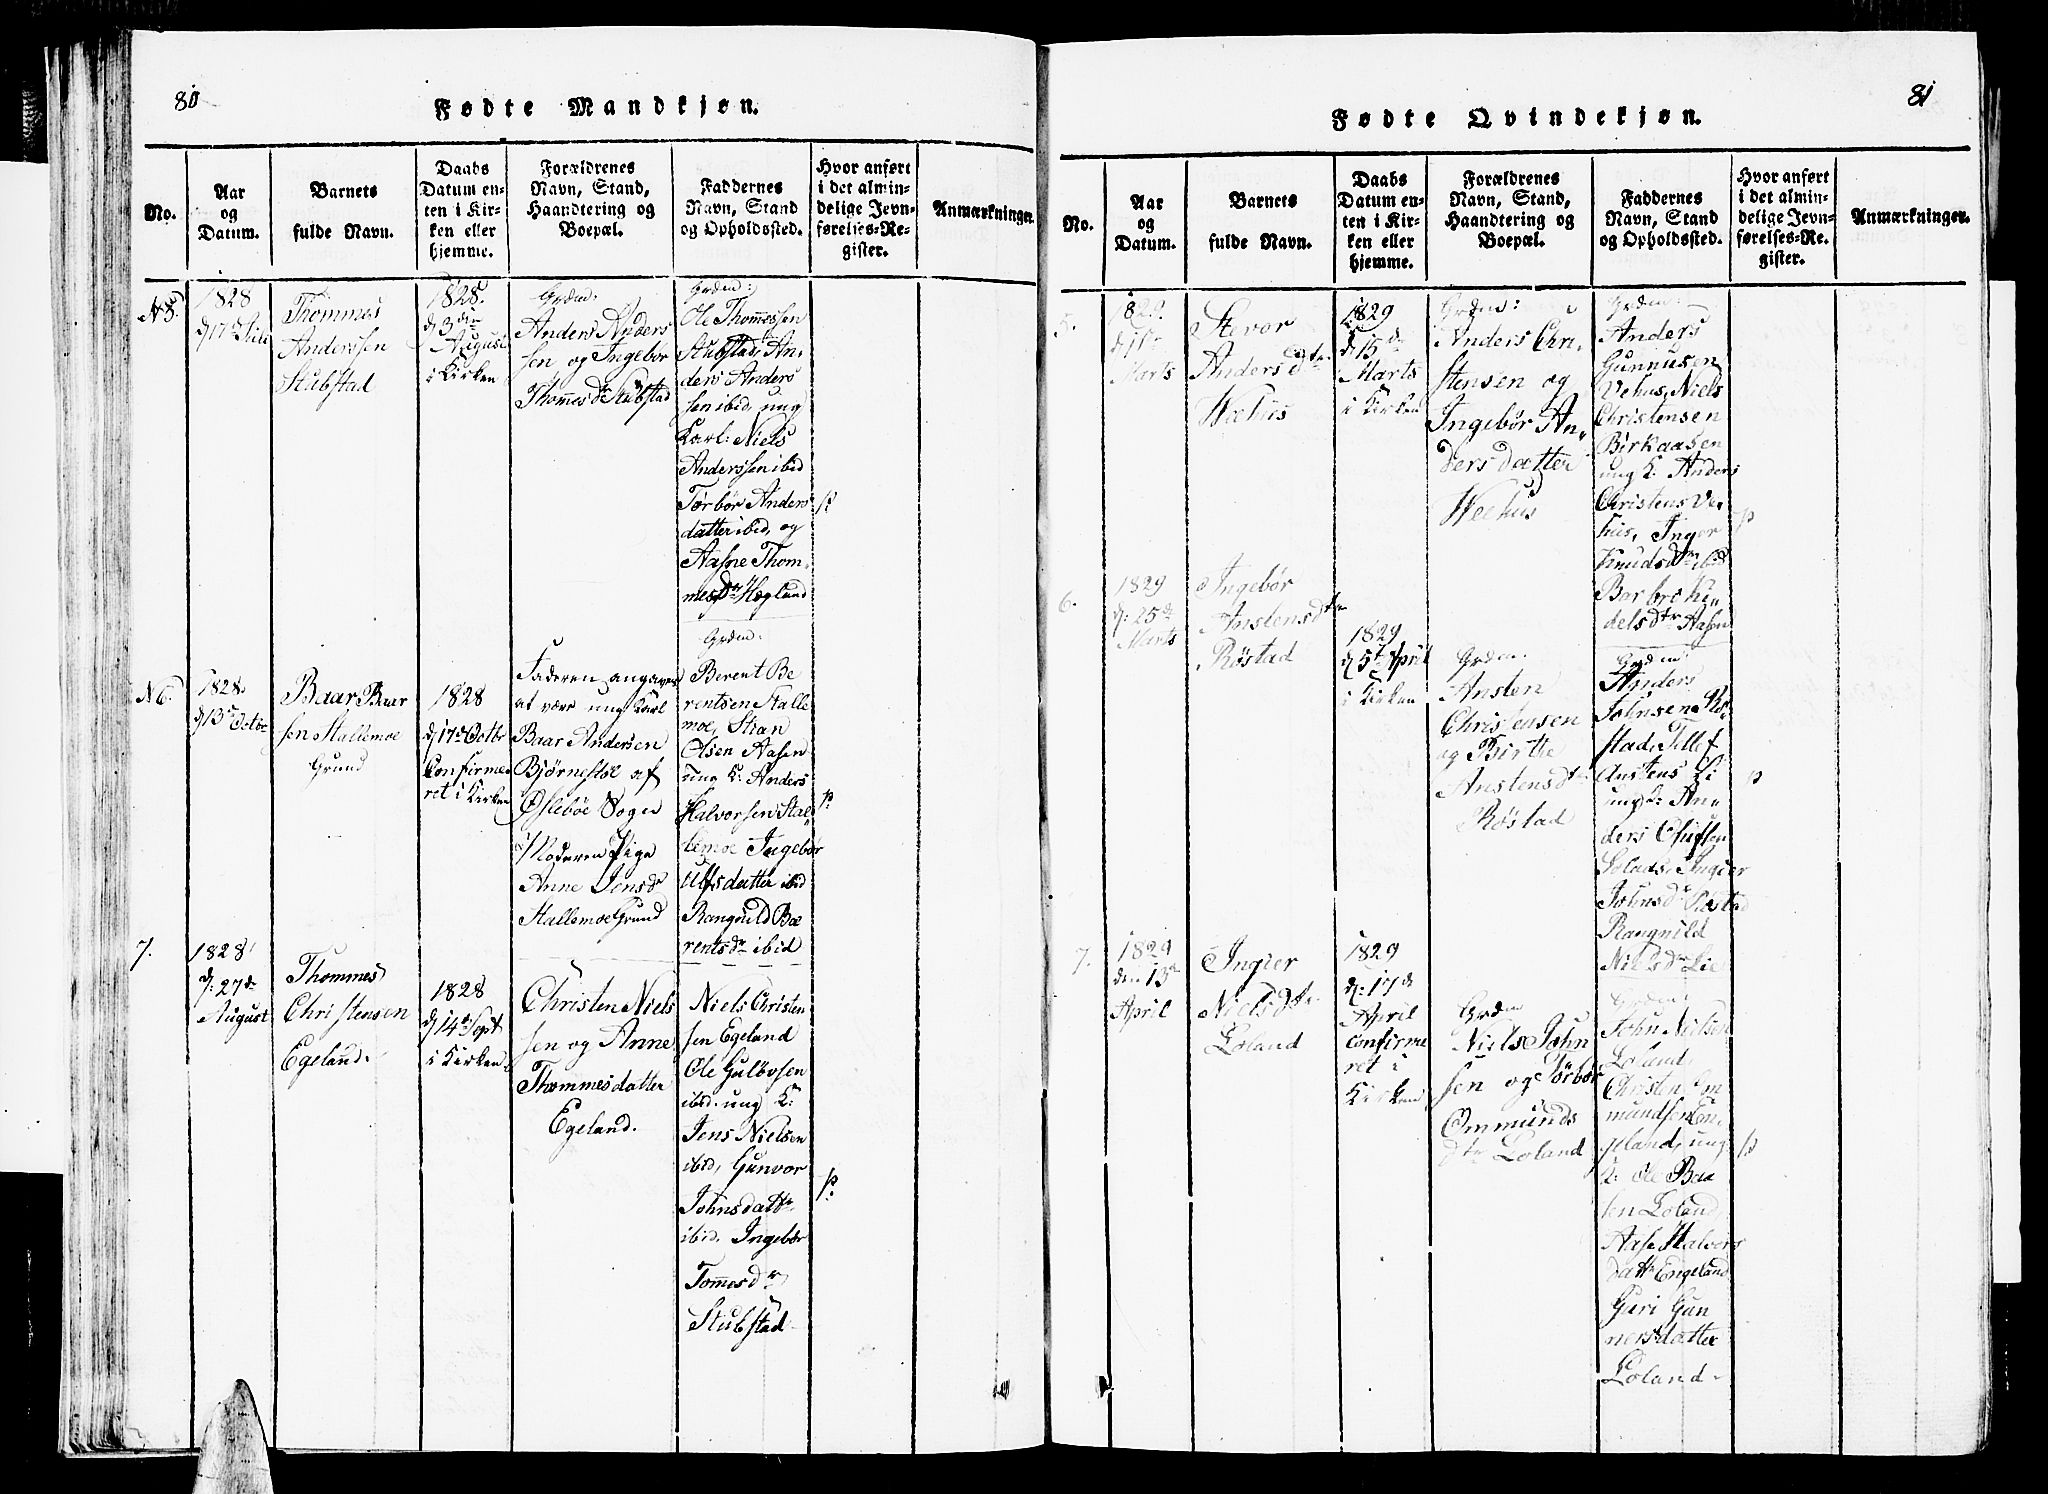 80
Fødte Mandkjøn.
No.
Aar
og
Datum.
Barnets
fulde Navn.
Daabs
Datum en-
ten i Kir-
ken eller
hjemme.
Forældrenes
Navn, Stand,
Haandtering og
Boepæl.
Faddernes
Navn, Stand
og Opholdssted.
Hvor anført
i det almin-
delige Jevn-
førelses-Re-
gister.
Anmærkninger.
N 5.
1828
Thommes
Anderssen
Stubstad
1828.
August
i Kirken
Grdm:
Anders Anders
sen og Ingebor
Thommesdr Stubstad
Grdm:
Ole Thommessen
Stubstad, An,
ders Anders
sen ibid, ung
Karl: Niels
Anderssen ibid
Torbør Anders
datter ibid, og
Aasne Thom,
mesdr Høglund
p.
N 6.
1828.
d 13 Octbr
Baar Baar
sen Stallemoe
Grund
1828
d 17de Octbr
Confirme,
ret i Kirken
Faderen angaves
at være ung Karl
Baar Andersen
Bjørnestøl af
Øslebøe Sogn
Moderen Pige
Anne Jensdr
Stallemoe Grund
Grdm:
Berent Be
rentsen Stalle
moe, Stian
Olsen Aasen
ung K: Anders
Halvorsen Stal,
lemoe Ingebor
Ulfsdatter ibid
Rangnild Be
rentsdr ibid
p.
7.
1828
d: 27de
August
Thommes
Christensen
Egeland.
1828
d 14de Sept
i Kirken.
Christen Niels
sen og Anne
Thommesdatter
Egeland.
Niels Christen
sen Egeland
Ole Gulovsen
ibid. ung K:
Jens Nielsen
ibid, Gunvor
Johnsdattr
ibid. Ingebør
Tommesdr
Stubstad
p.
81
Fødte Qvindekjøn.
No.
Aar
og
Datum.
Barnets
fulde Navn.
Daabs
Datum en-
ten i Kir-
ken eller
hjemme.
Forældrenes
Navn, Stand,
Haandtering og
Boepæl.
Faddernes
Navn, Stand
og Opholdssted.
Hvor anført
i det almin-
delige Jevn-
førelses-Re-
gister.
Anmærkninger.
5.
1829.
Marts
Andersdtr
Wehus
1829
d 15de
Marts
i Kirken
Grdm:
Anders Chri,
stensen og
Ingebør An,
dersdatter
Weehus
Grdm:
Anders
Gunnusen
Vehus, Niels
Christensen
Birkaasen
ung K: Anders
Christens Ve,
hus, Inger
Knudsdtr ibid
Barbro Ki,
delsdtr Aasen
p
6.
1829
d: 25de
Marts
Ingebør
Anstensdtr
Røstad
1829
d 5te April
i Kirken
Grdm:
Ansten
Christensen
og Birthe
Anstensdtr
Røstad
Grdm:
Anders
Johnsen Rø,
stad, Tellef
Anstens Li
ung K: An,
ders
Johnsdr
Rangnild
Nielsdr Lie
p
7.
1829
den 13de
April
Ingier
Nielsdtr
Loland
1829
d: 17de
April
confirme
ret i
Kirken
Grdm
Niels John
sen og Torbør
Ommunds
dtr Loland
Grdm:
John Nielsen
Loland,
Christen Om
mundsen En,
geland, ung
K: Ole Baa
sen Loland,
Aase Halvors
datr Engeland
Guri Gun
nersdatter
Loland.
p